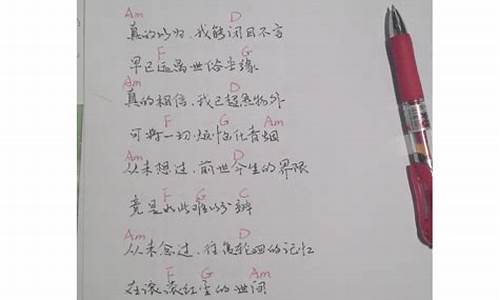 Am D
真的以为,我能闭目不言
F G
早已远离世俗尘缘
Am D
真的相信,我已超然物外
F G Am
可将一切烦恼化青烟
Am D
从未想过,前世今生的界限
F G C
竟是如此难以分辨
Am D
从未念过,往复轮回的记忆
F G Am
在滚滚红尘的世间